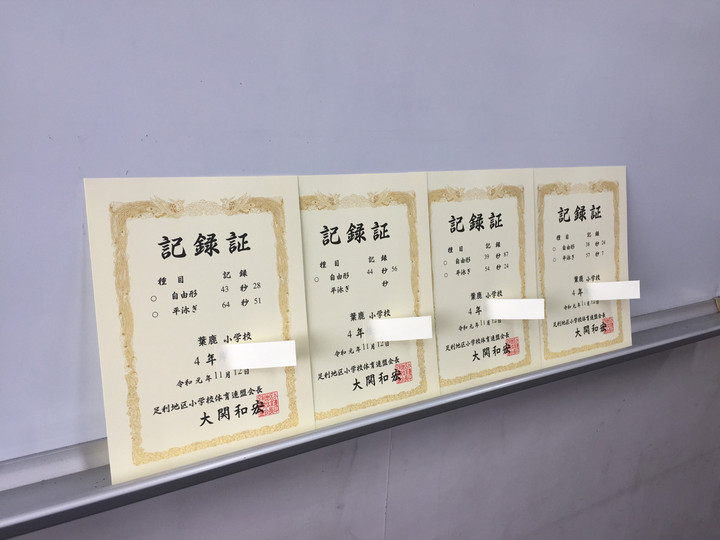 記録証
種目 記録
○ 自由形 43 秒 28
○ 平泳ぎ 64 秒 51
葉鹿 小学校
4 年
令和元年11月12日
足利地区小学校体育連盟会長
大関和宏
記録証
種目 記録
○ 自由形 44 秒 56
平泳ぎ 秒
葉鹿 小学校
4 年
令和元年11月12日
足利地区小学校体育連盟会長
大関和宏
記録証
種目 記録
○ 自由形 39 秒 87
○ 平泳ぎ 54 秒 24
葉鹿 小学校
4 年
令和元年11月12日
足利地区小学校体育連盟会長
大関和宏
記録証
種目 記録
○ 自由形 38 秒 26
○ 平泳ぎ 57 秒 7
葉鹿 小学校
4 年
令和元年11月12日
足利地区小学校体育連盟会長
大関和宏